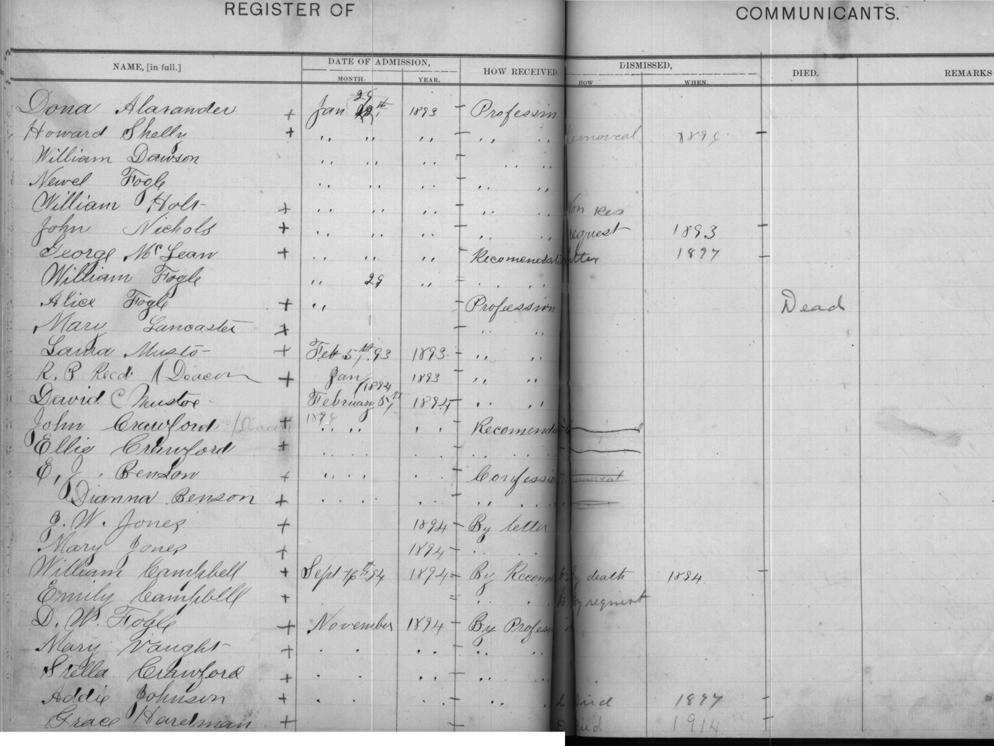 REGISTER OF COMMUNICANTS.
NAME, [in full.] DATE OF ADMISSION, HOW RECEIVED DISMISSED, DIED. REMARKS
MONTH. YEAR. HOW WHEN.
29
Dona Alaxander + Jan 1893 Profession
Howard Shelly + " " " " " removeal
William Dawson " " " " "
Newel Fogle " " " " "
William Holt + " " " " " Non Res
John Nichols + " " " " " request 1893
George McLean + " " " Recomendat letter 1897
William Fogle " 29 "
Alice Fogle + " Profession Dead
Mary Lancaster + " "
Laura Musto + Feb 5th, 93 1893 " "
R. P. Reed Deacon + Jan 1893 " "
1894
David C Mustoe February 5th 1894 " "
John Crawford + " " " " Recomend
Ellis Crawford + " " " " " "
E, J. Benson + " " " " Confessi
Dianna Benson + " " " " " "
J. W. Jones + 1894 By letter
Mary Jones + 1894 " "
William Campbell + Sept 1894 By Recom by death 1894
Emily Campbell + " " " by request
D. W. Fogle + November 1894 By Profess
Mary Vaught + " " " " "
Stella Crawford + " " " " " "
Addie Johnson + " " " " " " 1897
Grace Hardman + 1914